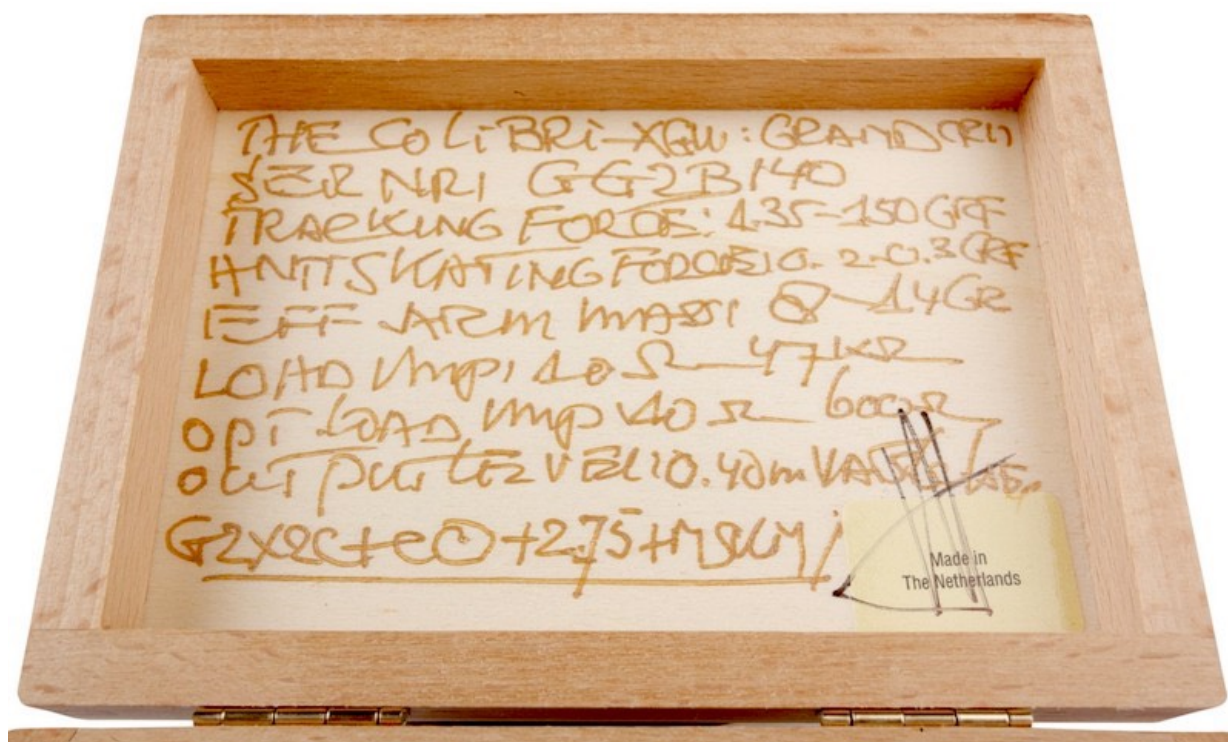 THE COLiBRi-XGW: GRAND CRU
SER NR: GG2B140
TRACKING FORCE: 1.35-1.50 GRF
ANTISKATING FORCE: 0.2-0.3 GRF
EFF ARM MASS: 8-14 GR
LOAD IMP: 10 Ω - 47 KΩ
OPT LOAD IMP 40 Ω - 600Ω
OUTPUT LEVEL: 0.40 mV
Made in
The Netherlands